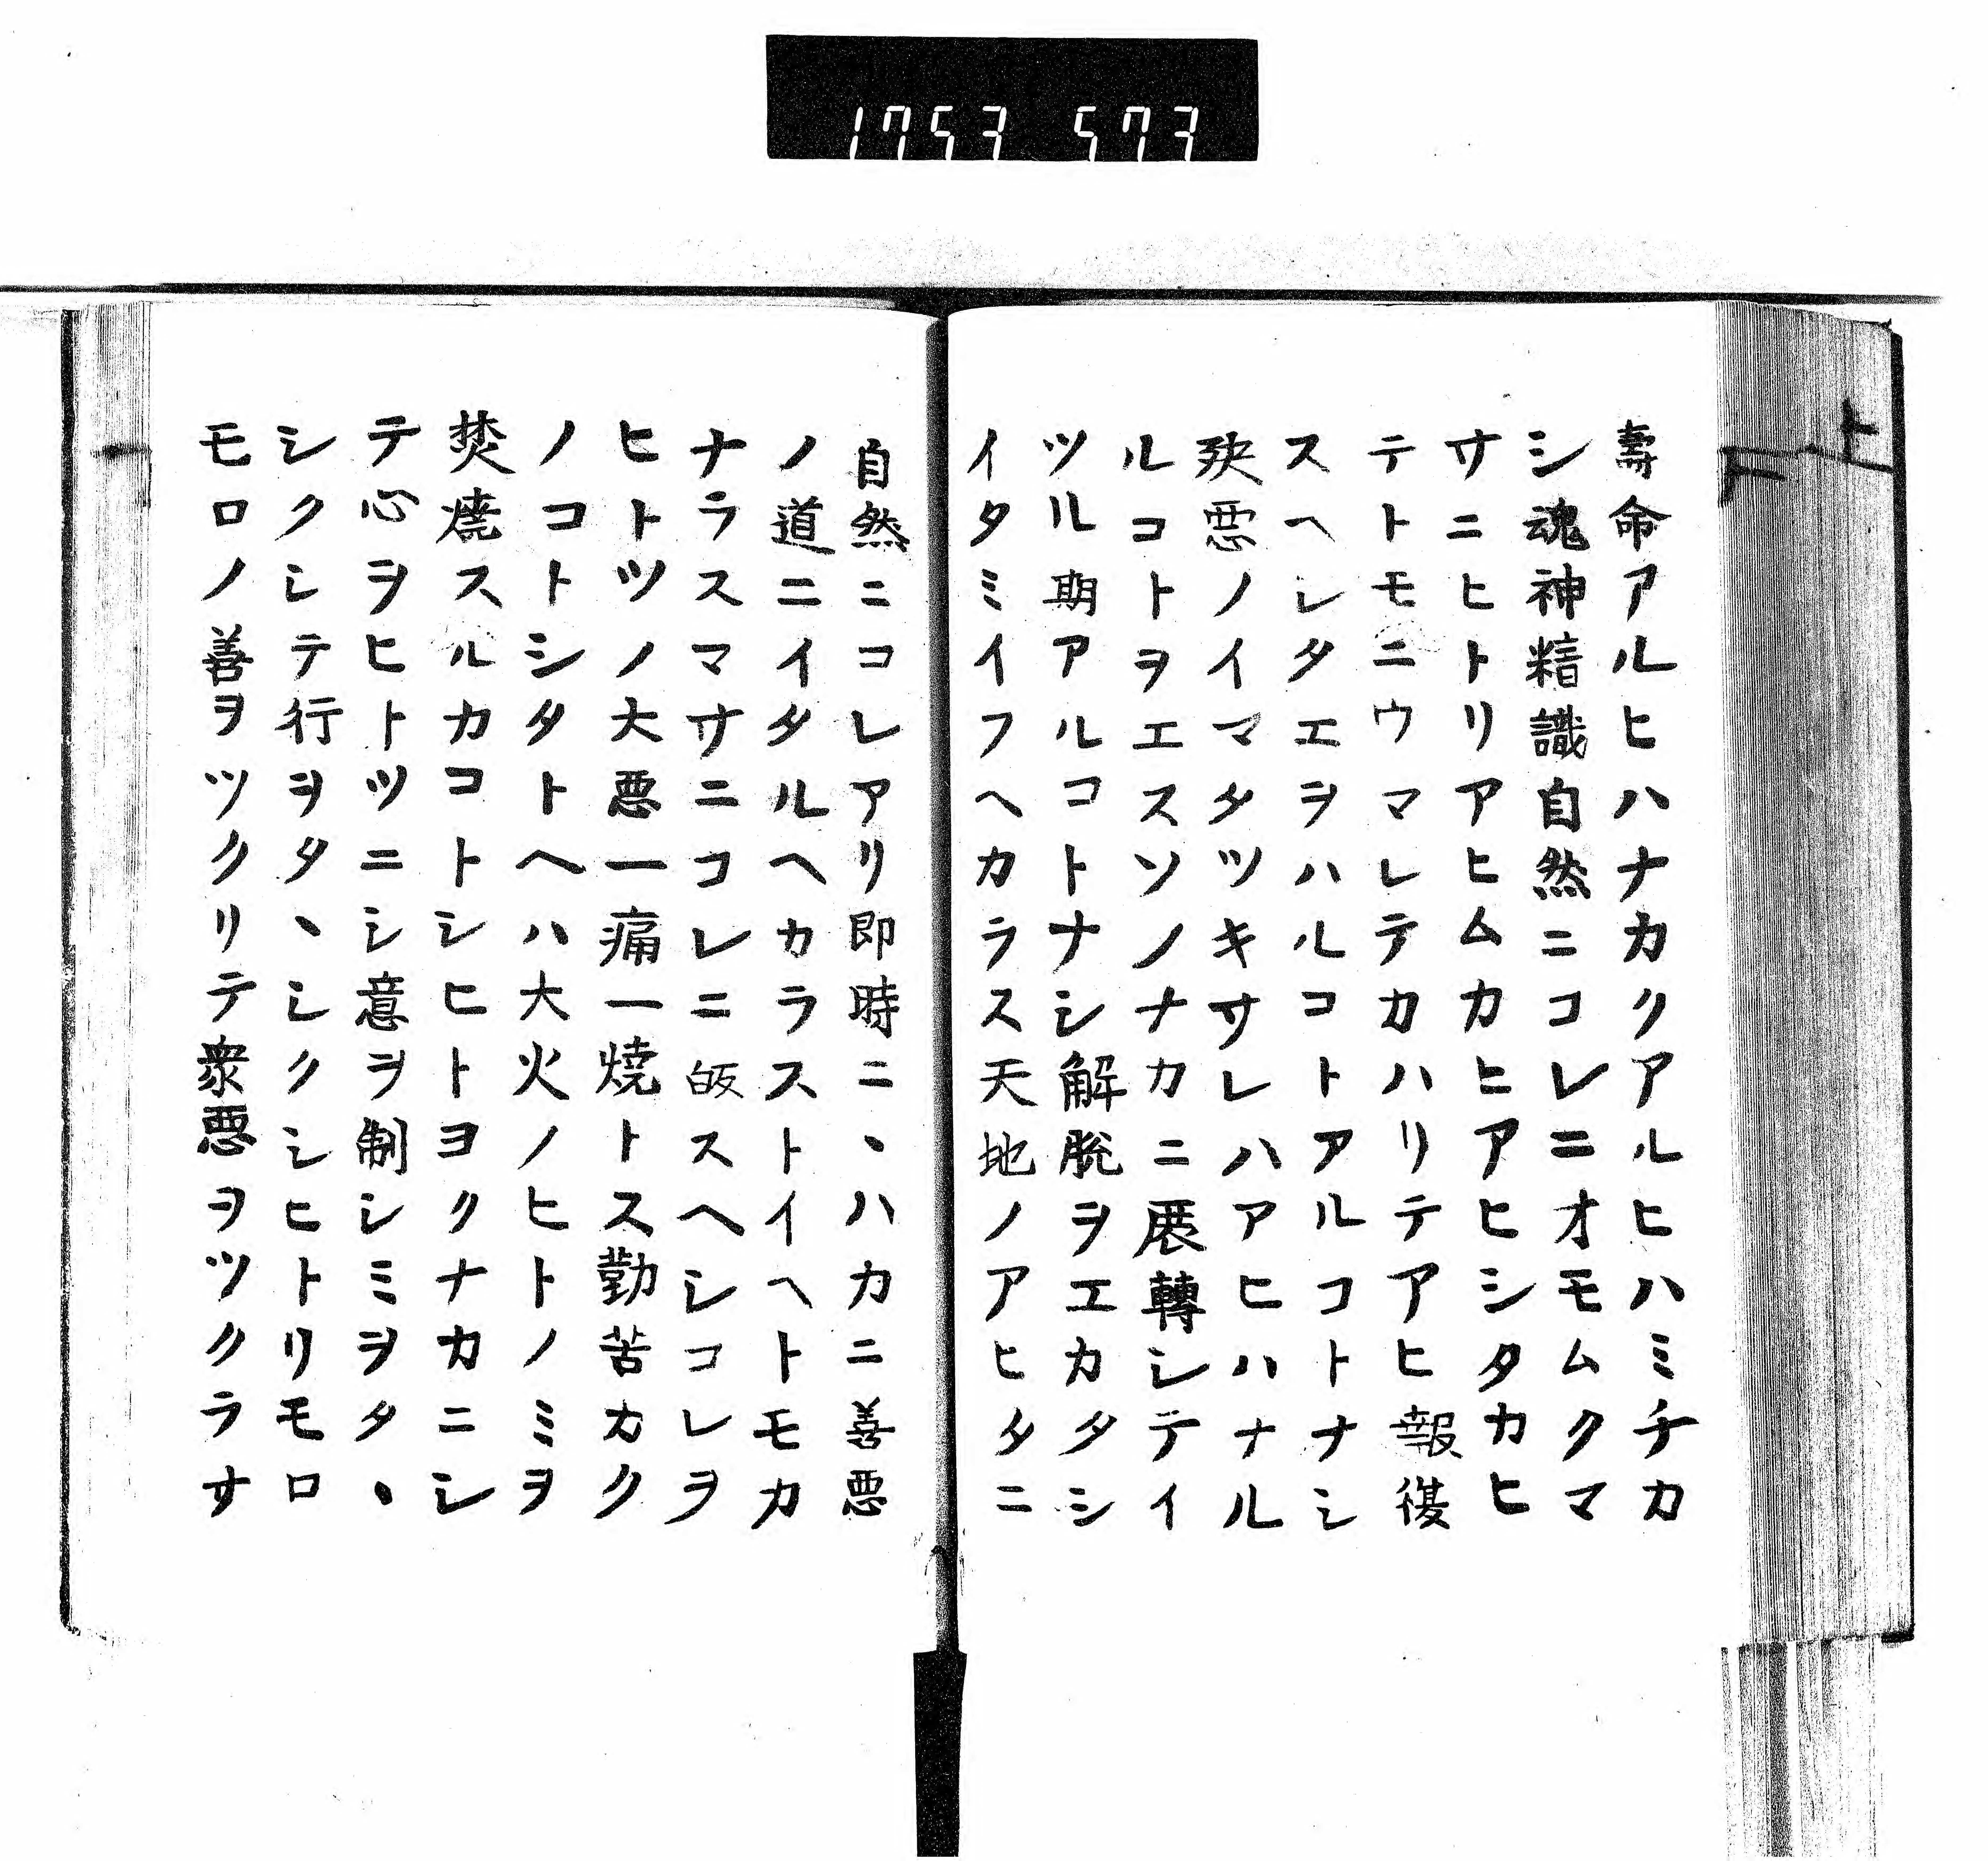 1753 573
壽命アルヒハナカクアルヒハミチカ
シ魂神精識自然ニコレニオモムクマ
サニヒトリアヒムカヒアヒシタカヒ
テトモニウマレテカハリテアヒ報復
スヘレタエヲハルコトアルコトナシ
殃悪ノイマタツキサレハアヒハナル
ルコトヲエスソノナカニ展轉シテイ
ツル期アルコトナシ解脱ヲエカタシ
イタミイフヘカラス天地ノアヒタニ
自然ニコレアリ即時ニ、ハカニ善悪
ノ道ニイタルヘカラストイヘトモカ
ナラスマサニコレニ皈スヘシコレヲ
ヒトツノ大悪一痛一焼トス勤苦カク
ノコトシタトヘハ大火ノヒトノミヲ
焚焼スルカコトシヒトヨクナカニシ
テ心ヲヒトツニシ意ヲ制シミヲタ、
シクシテ行ヲタ、シクシヒトリモロ
モロノ善ヲツクリテ衆悪ヲツクラサ
上
下